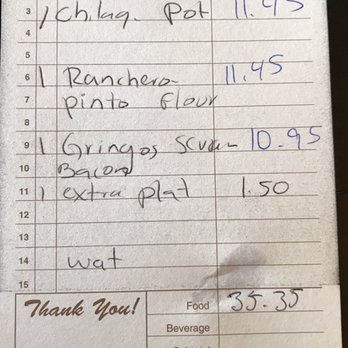 3 1 Chilaq. Pot 11.45
4
5
6 1 Ranchero 11.45
7 pinto flour
8
9 1 Gringos scram 10.95
10 Bacon
11 1 extra plat 1.50
12
13
14 wat
15
Thank You! Food 35.35
Beverage